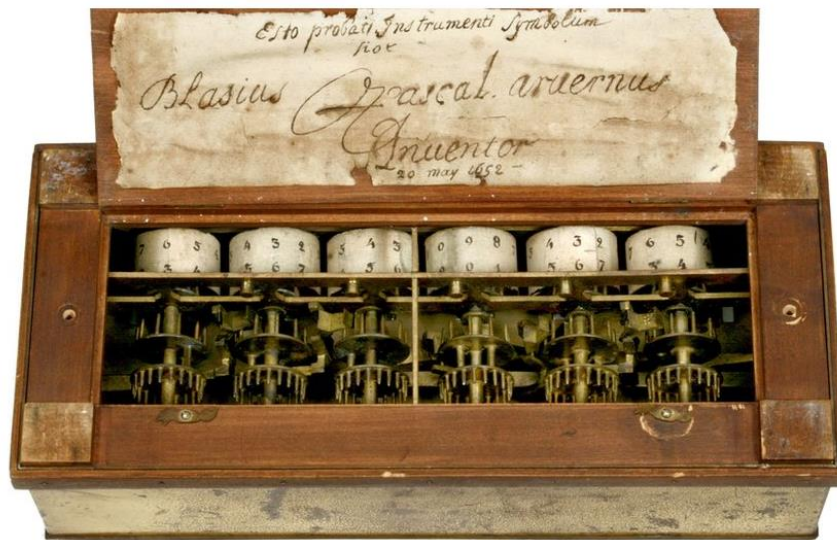 Esto probati Instrumenti Symbolum
hoc
Blasius Pascal. arvernus
Inventor
20 may 1652
7 6 5 4 3 2 5 4 3 0 9 8 4 3 2 6 5
3 4 6 7 5 6 0 1 5 6 7 3 4